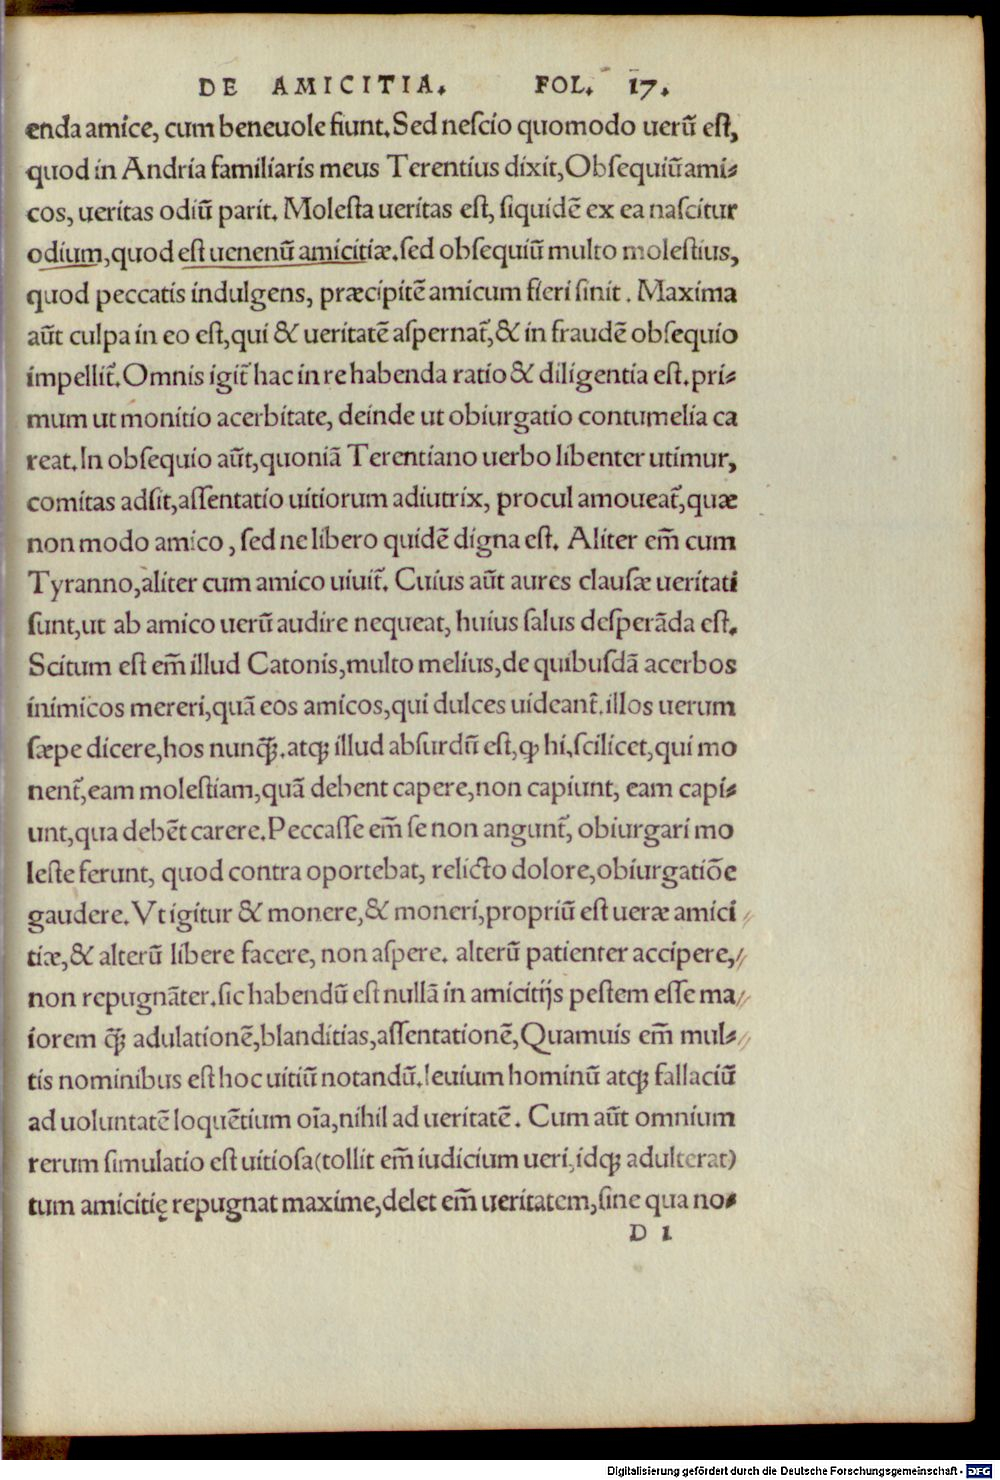 DE AMICITIA. FOL. 17.
enda amice, cum beneuole fiunt. Sed neſcio quomodo uerũ eſt,
quod in Andria familiaris meus Terentius dixit, Obſequiũ ami⸗
cos, ueritas odiũ parit. Moleſta ueritas eſt, ſiquidẽ ex ea naſcitur
odium, quod eſt uenenũ amicitiæ. ſed obſequiũ multo moleſtius,
quod peccatis indulgens, præcipitẽ amicum fieri ſinit. Maxima
aũt culpa in eo eſt, qui & ueritatẽ aſpernat̃, & in fraudẽ obſequio
impellit̃. Omnis igit̃ hac in re habenda ratio & diligentia eſt. pri⸗
mum ut monitio acerbitate, deinde ut obiurgatio contumelia ca
reat. In obſequio aũt, quoniã Terentiano uerbo libenter utimur,
comitas adſit, aſſentatio uitiorum adiutrix, procul amoueat̃, quæ
non modo amico, ſed ne libero quidẽ digna eſt. Aliter em̃ cum
Tyranno, aliter cum amico uiuit̃. Cuius aũt aures clauſæ ueritati
ſunt, ut ab amico uerũ audire nequeat, huius ſalus deſperãda eſt.
Scitum eſt em̃ illud Catonis, multo melius, de quibuſdã acerbos
inimicos mereri, quã eos amicos, qui dulces uideant̃. illos uerum
ſæpe dicere, hos nunq̃ꝫ. atqꝫ illud abſurdũ eſt, ꝙ hi, ſcilicet, qui mo
nent̃, eam moleſtiam, quã debent capere, non capiunt, eam capi⸗
unt, qua debẽt carere. Peccaſſe em̃ ſe non angunt̃, obiurgari mo
leſte ferunt, quod contra oportebat, relicto dolore, obiurgatiõe
gaudere. Vt igitur & monere, & moneri, propriũ eſt ueræ amici
tiæ, & alterũ libere facere, non aſpere. alterũ patienter accipere,
non repugnãter. ſic habendũ eſt nullã in amicitijs peſtem eſſe ma
iorem q̃ꝫ adulationẽ, blanditias, aſſentationẽ, Quamuis em̃ mul⸗
tis nominibus eſt hoc uitiũ notandũ. leuium hominũ atqꝫ fallaciũ
ad uoluntatẽ loquẽtium oĩa, nihil ad ueritatẽ. Cum aũt omnium
rerum ſimulatio eſt uitioſa (tollit em̃ iudicium ueri, idqꝫ adulterat)
tum amicitię repugnat maxime, delet em̃ ueritatem, ſine qua no⸗
D 1
Digitalisierung gefördert durch die Deutsche Forschungsgemeinschaft - DFG